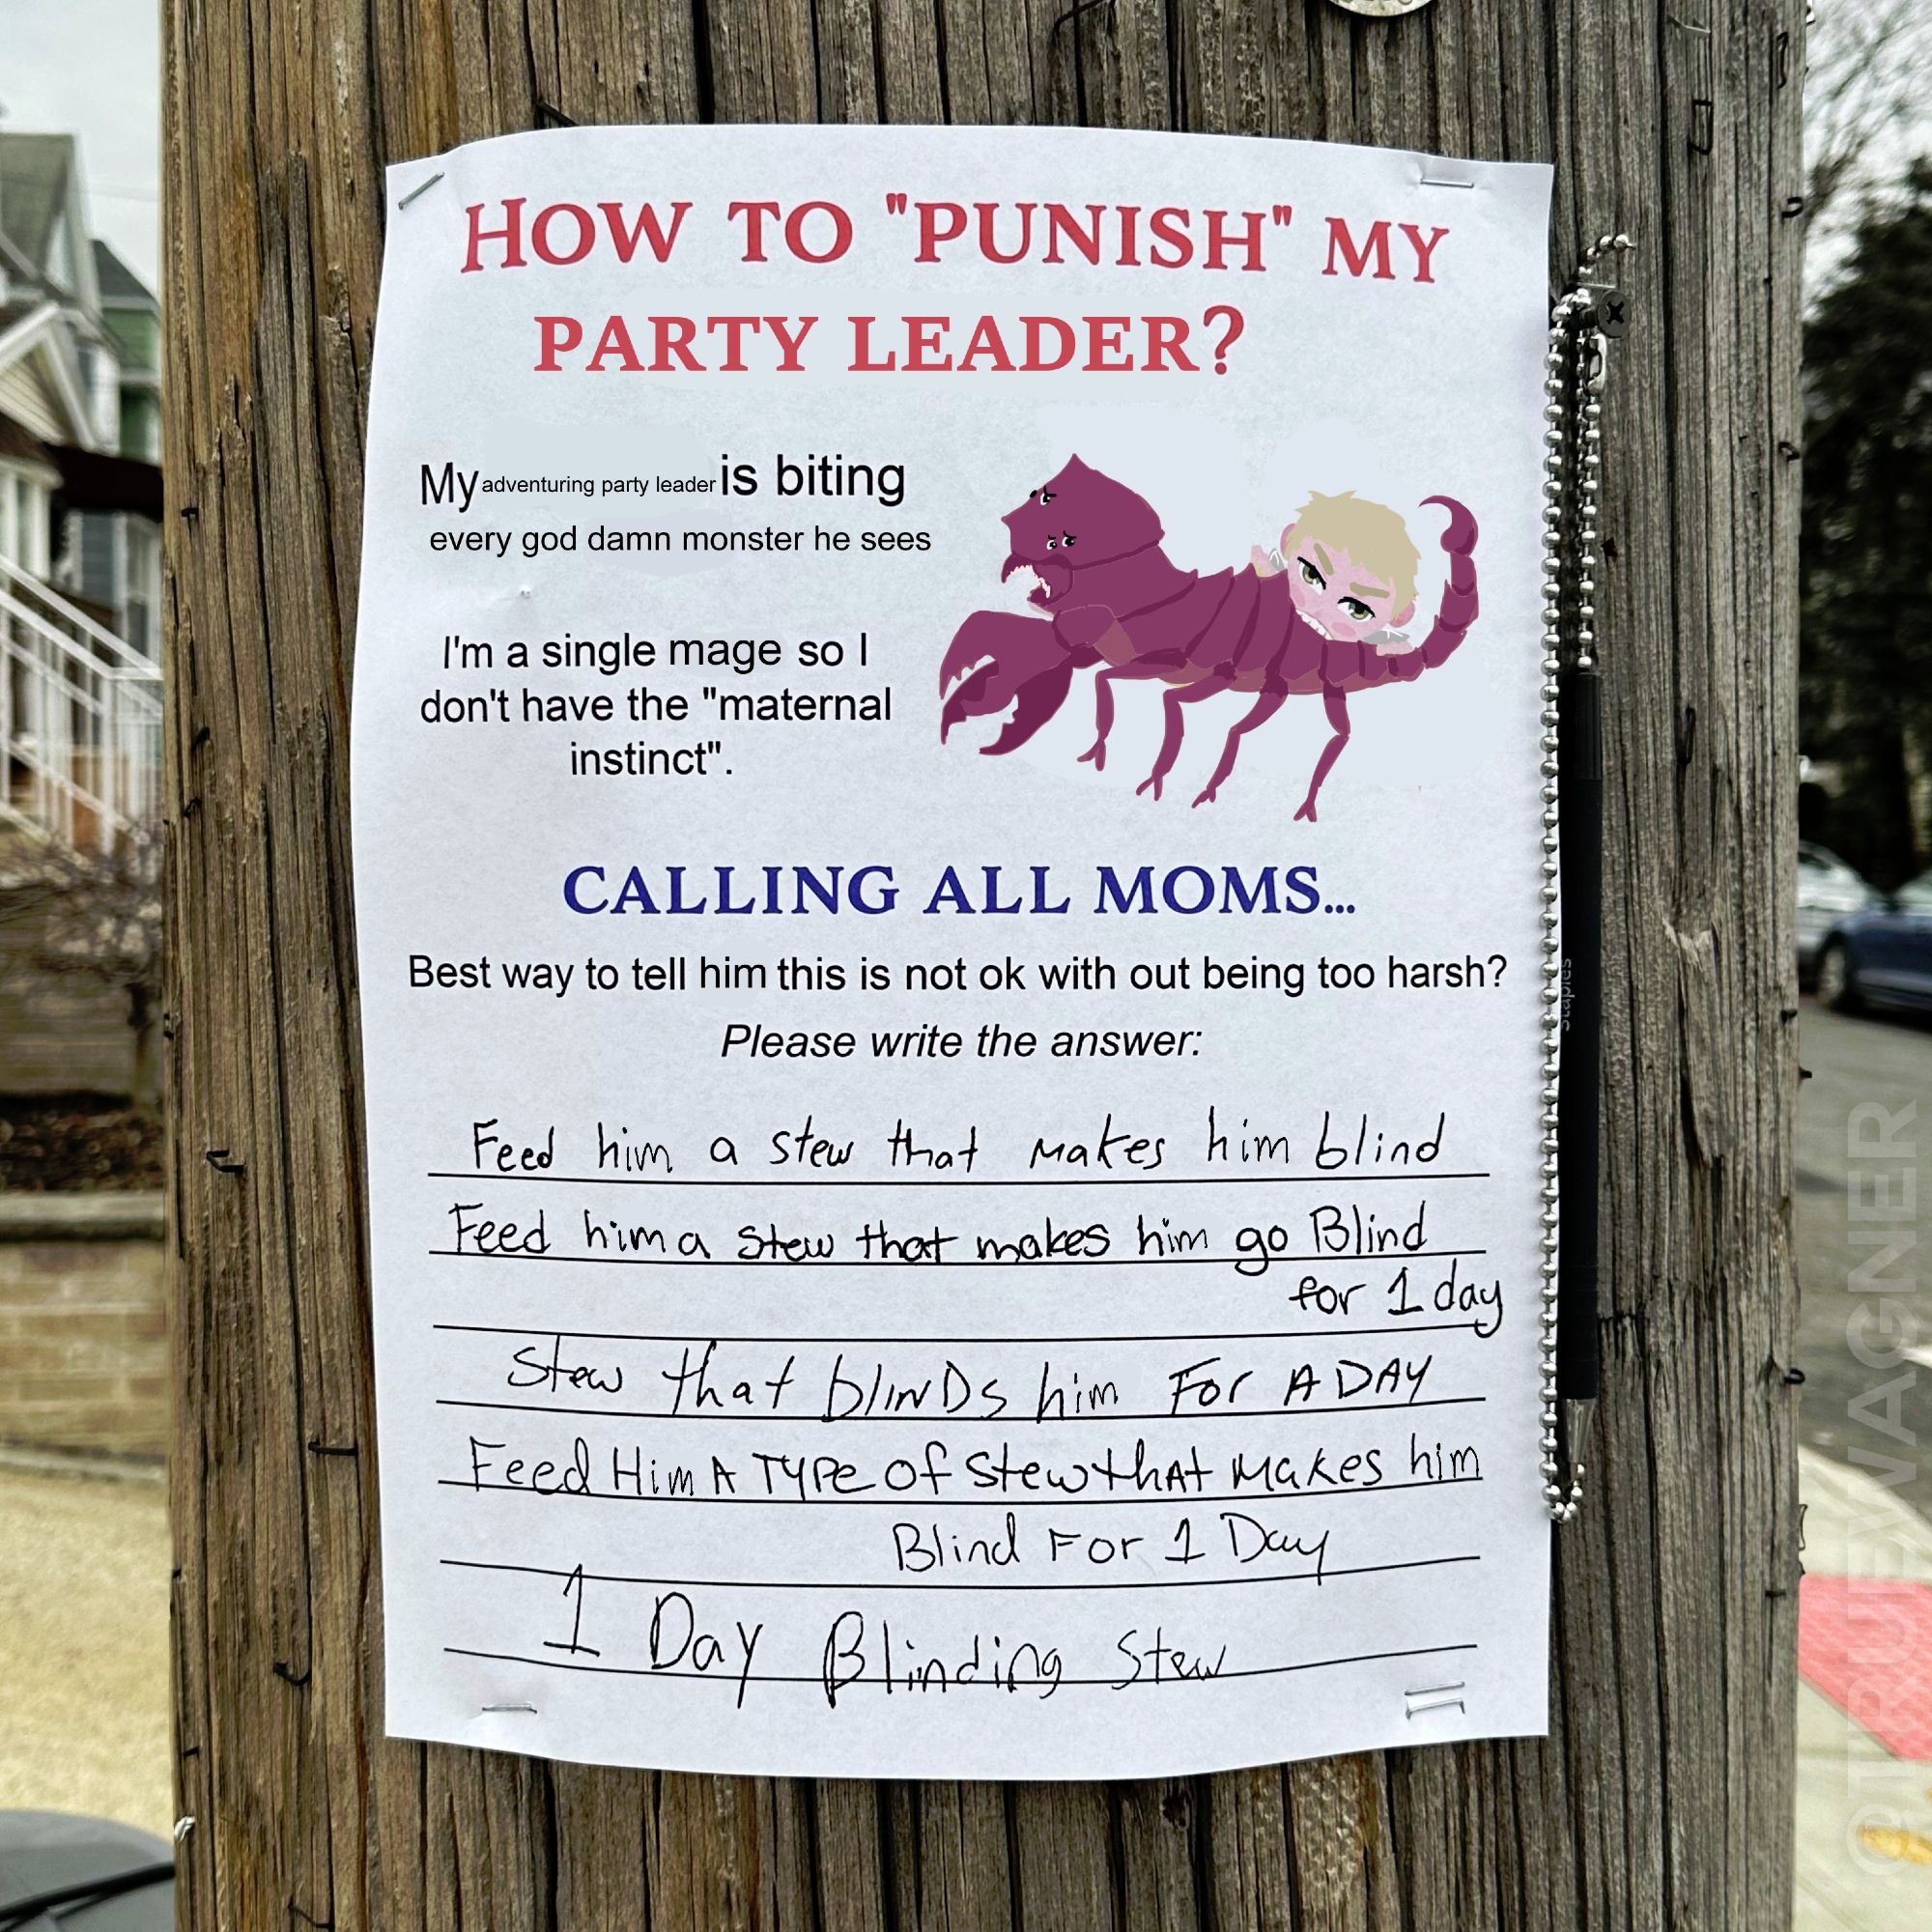 HOW TO "PUNISH" MY
PARTY LEADER?
My adventuring party leader is biting
every god damn monster he sees
I'm a single mage so I
don't have the "maternal
instinct".
CALLING ALL MOMS...
Best way to tell him this is not ok with out being too harsh?
Please write the answer:
Feed him a stew that makes him blind
Feed him a stew that makes him go Blind
for 1 day
Stew that blINDs him For A DAY
Feed Him A TYPe of stew thAt Makes him
Blind For 1 Day
1 Day Blinding Stew
Staples
@TRUEWAGNER